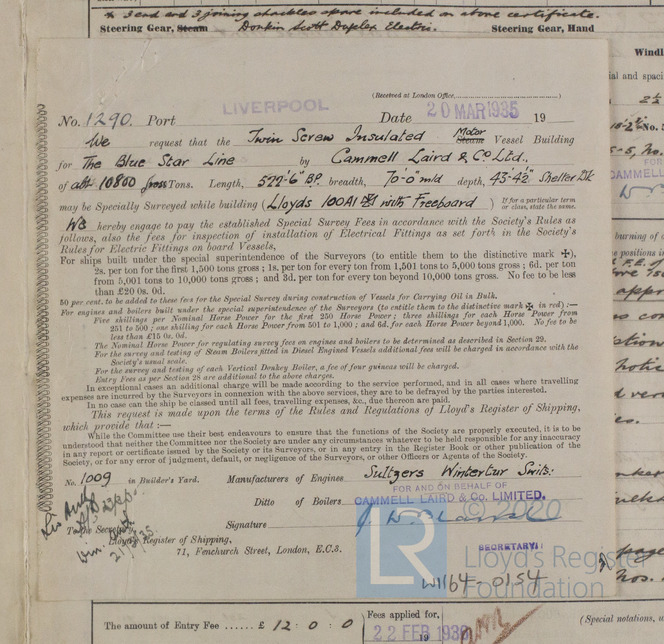 & 3 end and 3 joining shackles spare included on above certificate.
Steering Gear, Steam Donkin Scott Duplex Electric. Steering Gear, Hand
Windl
(Received at London Office
No. 1290. Port LIVERPOOL Date 20 MAR 1935 19
We request that the Twin Screw Insulated Motor Steam Vessel Building
for The Blue Star Line by Cammell Laird & Co Ltd.,
of abt. 10800 gross Tons. Length, 577'-6" B.P. breadth, 70'-0" mld depth, 43'-42" Shelter Dk
may be Specially Surveyed while building (Lloyds 100A1 with Freeboard) If for a particular term or class, state the same.
We hereby engage to pay the established Special Survey Fees in accordance with the Society's Rules as
follows, also the fees for inspection of installation of Electrical Fittings as set forth in the Society's
Rules for Electric Fittings on board Vessels,
For ships built under the special superintendence of the Surveyors (to entitle them to the distinctive mark ✠),
2s. per ton for the first 1,500 tons gross; 1s. per ton for every ton from 1,501 tons to 5,000 tons gross; 6d. per ton
from 5,001 tons to 10,000 tons gross; and 3d. per ton for every ton beyond 10,000 tons gross. No fee to be less
than £20 0s. 0d.
50 per cent. to be added to these fees for the Special Survey during construction of Vessels for Carrying Oil in Bulk.
For engines and boilers built under the special superintendence of the Surveyors (to entitle them to the distinctive mark ✠ in red) :—
Five shillings per Nominal Horse Power for the first 250 Horse Power; three shillings for each Horse Power from
251 to 500; one shilling for each Horse Power from 501 to 1,000; and 6d. for each Horse Power beyond 1,000. No fee to be
less than £15 0s. 0d.
The Nominal Horse Power for regulating survey fees on engines and boilers to be determined as described in Section 29.
For the survey and testing of Steam Boilers fitted in Diesel Engined Vessels additional fees will be charged in accordance with the
Society's usual scale.
For the survey and testing of each Vertical Donkey Boiler, a fee of four guineas will be charged.
Entry Fees as per Section 28 are additional to the above charges.
In exceptional cases an additional charge will be made according to the service performed, and in all cases where travelling
expenses are incurred by the Surveyors in connexion with the above services, they are to be defrayed by the parties interested.
In no case can the ship be classed until all fees, travelling expenses, &c., due thereon are paid.
This request is made upon the terms of the Rules and Regulations of Lloyd's Register of Shipping,
which provide that :—
While the Committee use their best endeavours to ensure that the functions of the Society are properly executed, it is to be
understood that neither the Committee nor the Society are under any circumstances whatever to be held responsible for any inaccuracy
in any report or certificate issued by the Society or its Surveyors, or in any entry in the Register Book or other publication of the
Society, or for any error of judgment, default, or negligence of the Surveyors, or other Officers or Agents of the Society.
No. 1009 in Builder's Yard. Manufacturers of Engines Sultzers Wintertur Swits:
FOR AND ON BEHALF OF
Ditto of Boilers CAMMELL LAIRD & Co. LIMITED.
© 2020
Signature
To the Secretary,
Lloyd's Register of Shipping,
71, Fenchurch Street, London, E.C.3.
21/3/35
SECRETARY
LR Lloyd's Register
Foundation
W1164-0154
The amount of Entry Fee ...... £ 12 : 0 : 0
Fees applied for,
22 FEB 1938 19
(Special notations,